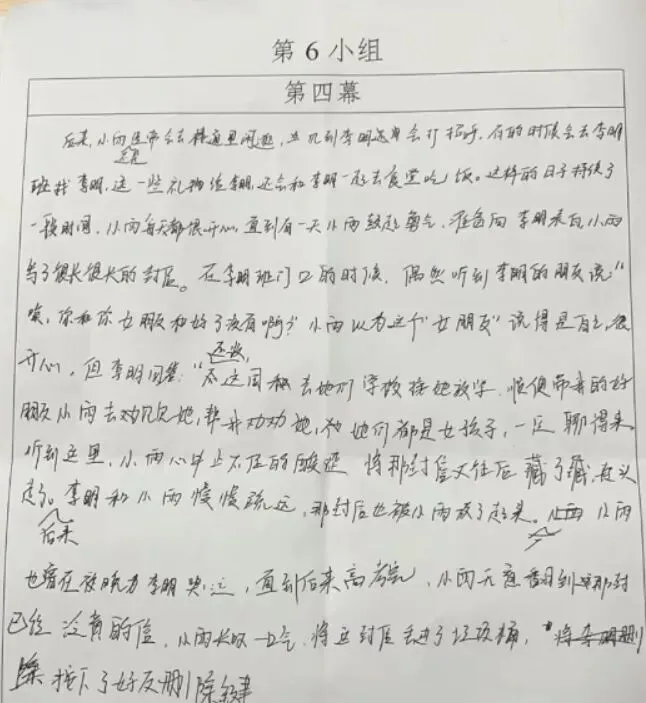 第 6 小组
第四幕
后来,小雨经常会去楼道里闲逛,当见到李明总是会打招呼,有的时候会去李明
班找李明,送一些礼物给李明,还会和李明一起去食堂吃饭。这样的日子持续了
一段时间,小雨每天都很开心,直到有一天小雨鼓起勇气,准备向李明表白,小雨
写了很长很长的封信。在李明班门口的时候,偶然听到李明的朋友说:"
唉,你和你女朋友和好了没有啊?"小雨以为这个"女朋友"说得是自己,很
开心,但李明回答:"还没,这周我去她们学校接她放学,顺便带我的好
朋友小雨去劝她,帮我劝劝她,她们都是女孩子,一定聊得来
听到这里,小雨心中止不住的酸涩 将那封信又往后藏了藏,
李明和小雨慢慢疏远,那封信也被小雨放了起来。小雨
后来
也曾在夜晚为李明哭泣,直到后来高考完,小雨无意翻到那封
已经泛黄的信,小雨长叹一口气,将这封信丢进了垃圾桶,将李明删
除 按下了好友删除键